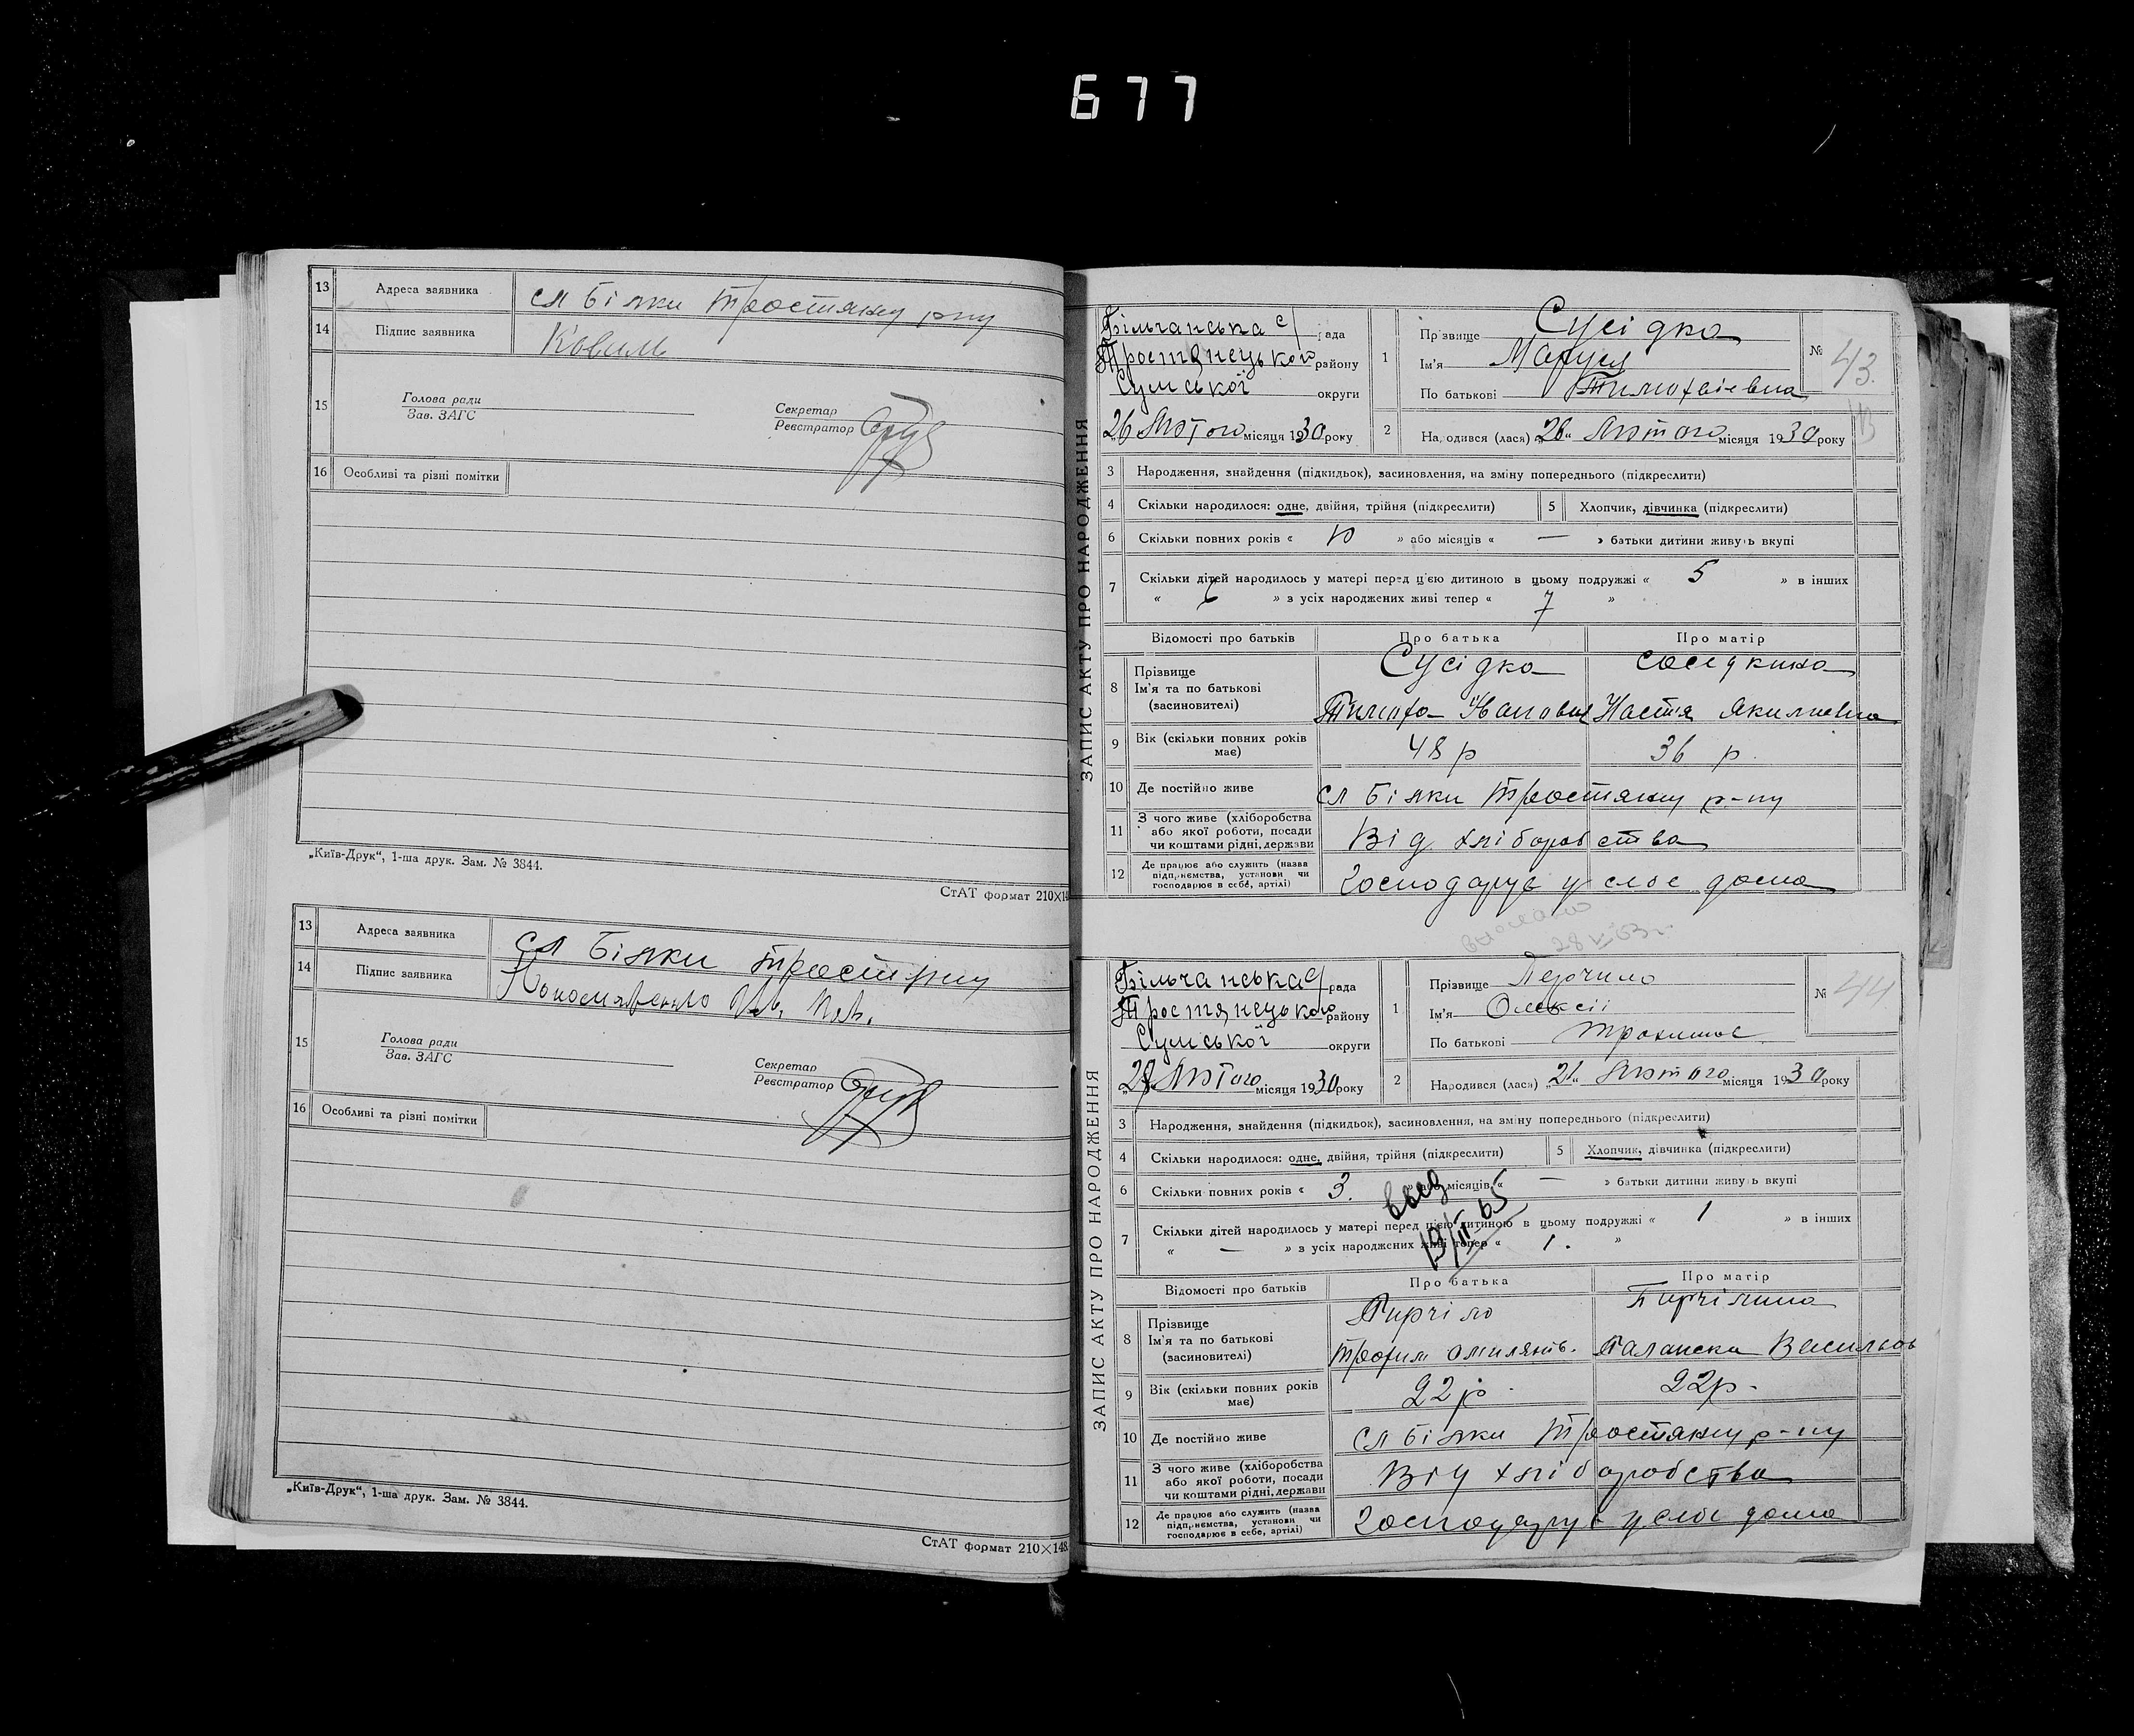 677
13 Адреса заявника сл Білки Тростянц рну
14 Підпис заявника Коваль
15 Голова ради
Зав. ЗАГС
Секретар
Реєстратор
16 Особливі та різні помітки
„Київ-Друк“, 1-ша друк. Зам. № 3844.
СтАТ формат 210×14
13 Адреса заявника сл Білки трост рну
14 Підпис заявника
15 Голова ради
Зав. ЗАГС
Секретар
Реєстратор
16 Особливі та різні помітки
„Київ-Друк“, 1-ша друк. Зам. № 3844.
СтАТ формат 210×148
ЗАПИС АКТУ ПРО НАРОДЖЕННЯ
Більчанська с/рада
Тростянецького району
Сумської округи
„26 Лютого місяця 1930 року
1 Прізвище Сусідко
Ім'я Маруся
По батькові Тимохвіевна
№ 43.
2 Народився (лася) „26“ Лютого місяця 1930 року
3 Народження, знайдення (підкидьок), засиновлення, на зміну попереднього (підкреслити)
4 Скільки народилося: одне, двійня, трійня (підкреслити)
5 Хлопчик, дівчинка (підкреслити)
6 Скільки повних років « 10 » або місяців « — » батьки дитини живуть вкупі
7 Скільки дітей народилось у матері перед цією дитиною в цьому подружжі « 5 » в інших
« » з усіх народжених живі тепер « 7 »
Відомості про батьків Про батька Про матір
8 Прізвище Сусідко Соседкина
Ім'я та по батькові Тимофа Иванович Настя Якимовна
(засиновителі)
9 Вік (скільки повних років має) 48 р 36 р.
10 Де постійно живе сл Білки Тростянц р-ну
11 З чого живе (хліборобства
або якої роботи, посади
чи коштами рідні, держави Від хліборобства
12 Де працює або служить (назва
підприємства, установи чи
господарює в себе, артілі) Господарує у себе дома
28 VI 63 г.
ЗАПИС АКТУ ПРО НАРОДЖЕННЯ
Більчанська с/рада
Тростянецького району
Сумської округи
„28“ Лютого місяця 1930 року
1 Прізвище Перчило
Ім'я Олексій
По батькові Трохимов
№ 44
2 Народився (лася) „21“ Лютого місяця 1930 року
3 Народження, знайдення (підкидьок), засиновлення, на зміну попереднього (підкреслити)
4 Скільки народилося: одне, двійня, трійня (підкреслити)
5 Хлопчик, дівчинка (підкреслити)
6 Скільки повних років « 3. » або місяців « — » батьки дитини живуть вкупі
7 Скільки дітей народилось у матері перед цією дитиною в цьому подружжі « 1 » в інших
« — » з усіх народжених живі тепер « 1. »
Відомості про батьків Про батька Про матір
8 Прізвище Пирчіло Пирчілина
Ім'я та по батькові Трохим Омилянів. Палажка Васильов
(засиновителі)
9 Вік (скільки повних років має) 22 р. 22р.
10 Де постійно живе сл Білки Тростянц р-ну
11 З чого живе (хліборобства
або якої роботи, посади
чи коштами рідні, держави Від хліборобства
12 Де працює або служить (назва
підприємства, установи чи
господарює в себе, артілі) Господарує у себе дома